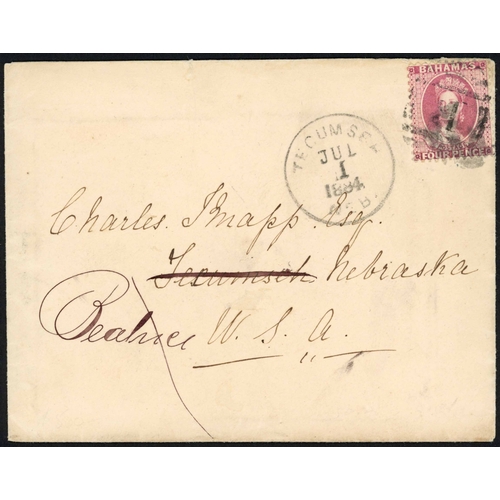 BAHAMAS
FOUR PENCE
TECUMSEH
JUL
1
1884
NEB.
Charles. Knapp. Esq.
Tecumseh Nebraska
Beatrice U. S. A.